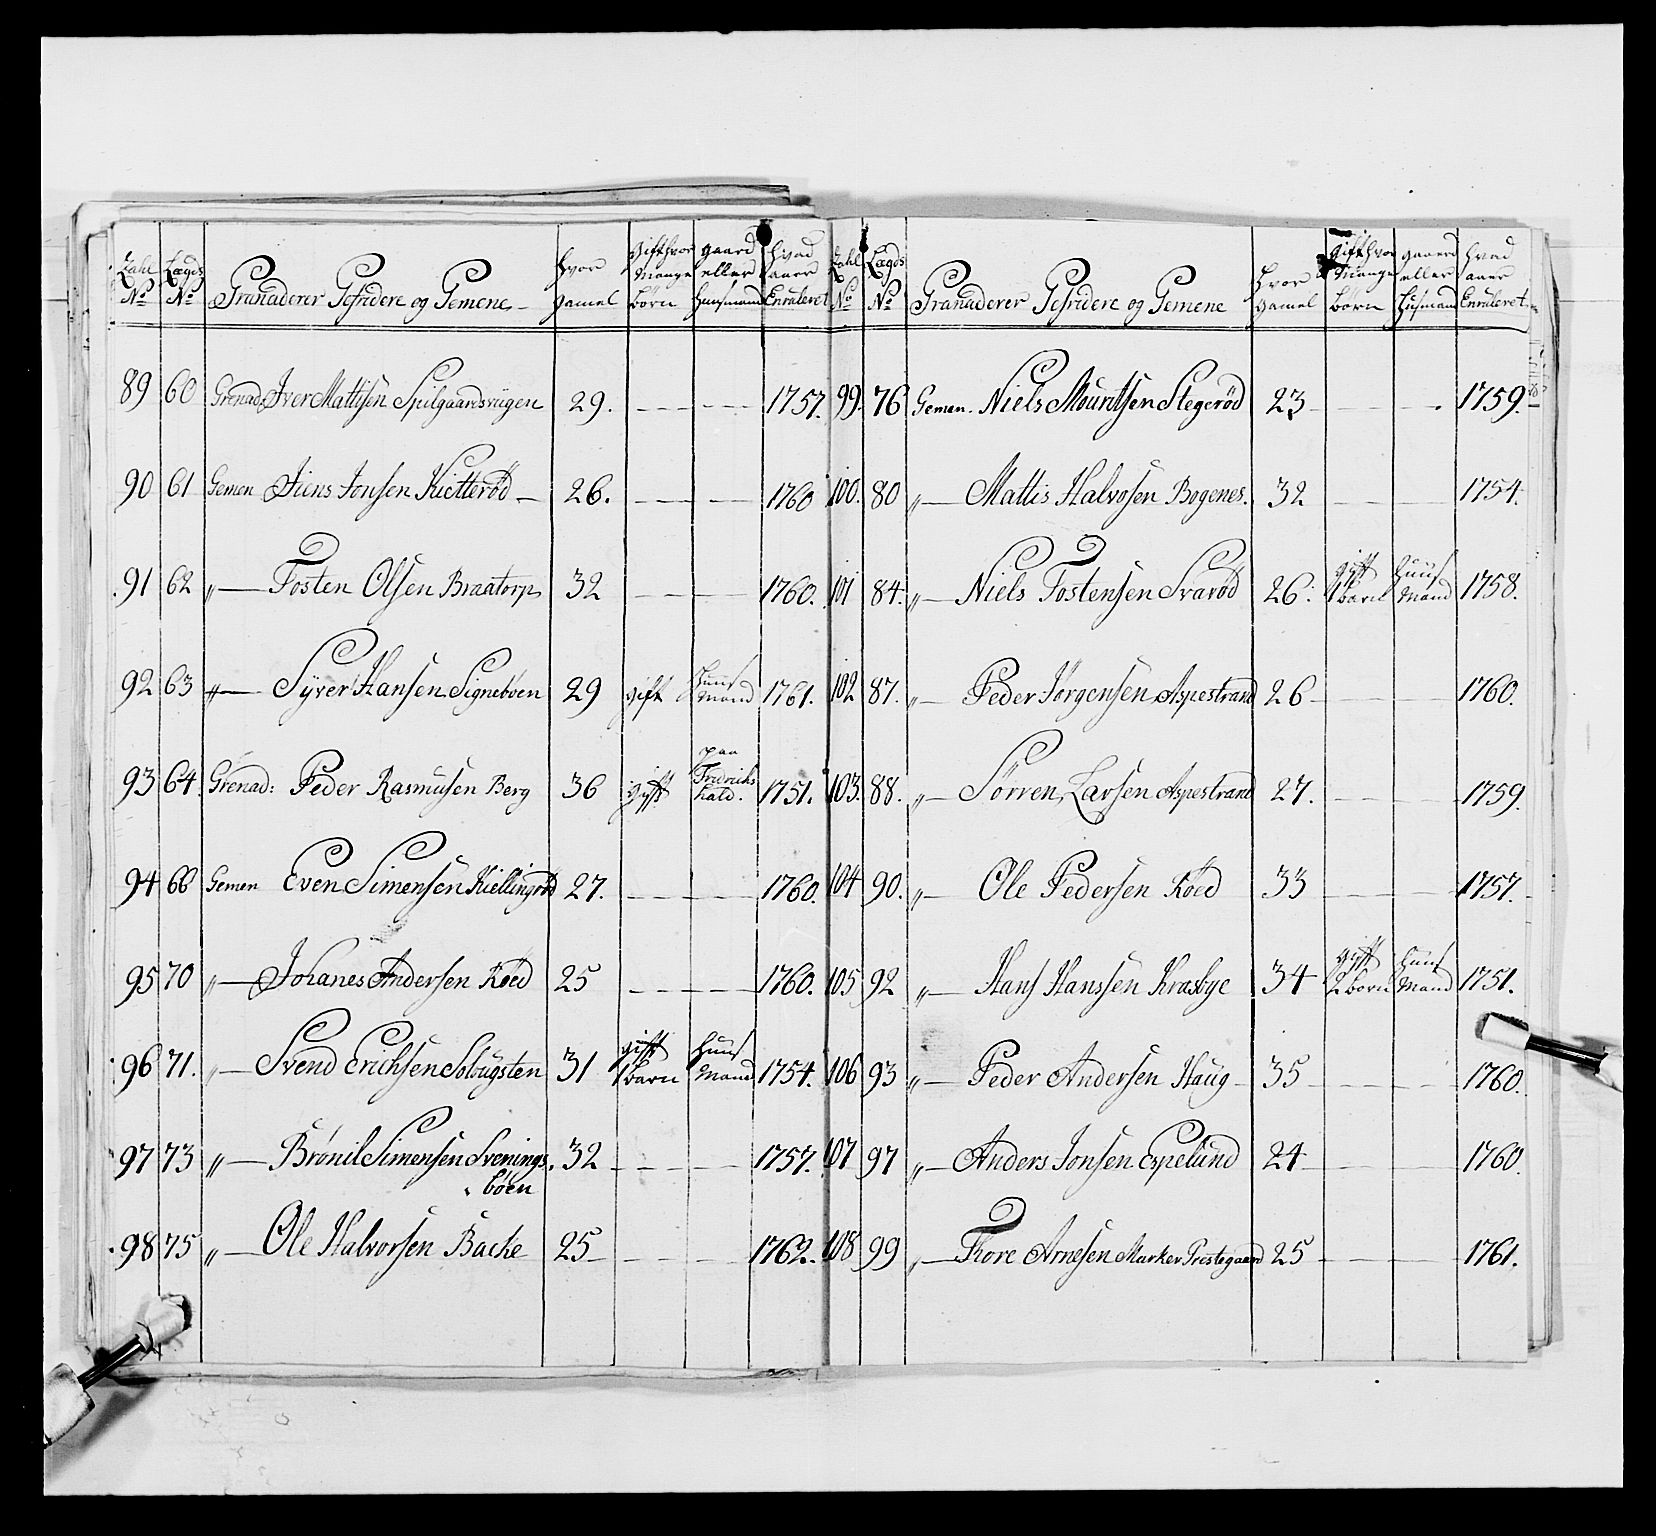 Zahl No | Lægds No | Granaderer Gefridere og Gemene | Hvor gamel | Gift hvor Mange børn | gaard eller Huusmand | hvad aaer Enruleret
89 | 60 | Grenad: Iver Mattisen Spilgaardsvügen | 29. | — | — | 1757.
90 | 61 | Gemen Jiens Jonsen Kietterød | 26. | — | — | 1760
91 | 62 | „— Tosten Olsen Braatorp | 32 | — | — | 1760.
92 | 63 | „— Syver Hansen Signebøen | 29 | gift | Huus Mand | 1761.
93 | 64 | Grenad: Peder Rasmusen Berg | 36 | gift | paa Fridrichs hald. | 1751.
94 | 66 | Gemen Even Simensen Kiellingrød | 27. | — | — | 1760.
95 | 70 | „— Johanes Andersen Røed | 25 | — | — | 1760.
96 | 71. | „— Svend Erichsen Solbügsten | 31 | gift 1 barn | Huus Mand | 1754.
97 | 73 | „— Brønil Simensen Svenings bøen | 32 | — | — | 1757.
98 | 75 | „— Ole Halvorsen Bache | 25 | — | — | 1762.
Zahl No | Lægds No | Granaderer Gefridere og Gemene | Hvor gamel | Gift hvor Mange børn | gaard eller Husmand | hvad aaer Enruleret
99. | 76 | Gemen. Niels Mouritsen Stegerød | 23 | — | — | 1759.
100. | 80 | „— Mattis Halvosen Bogenes. | 32 | — | — | 1754.
101 | 84. | „— Niels Tostensen Svarød | 26. | gift 1 barn | Huus Mand | 1758.
102 | 87. | „— Peder Jørgensen Aspestrand | 26 | — | — | 1760.
103. | 88. | „— Sørren Larsen Aspestrand | 27. | — | — | 1759.
104 | 90. | „— Ole Pedersen Røed | 33 | — | — | 1757.
105 | 92 | „— Hans Hanssen Krasbye | 34 | gift 2 born | Huus Mand | 1751.
106 | 93 | „— Peder Andersen Haüg | 35 | — | — | 1760.
107 | 97 | „— Anders Jonsen Espelund | 24 | — | — | 1760.
108 | 99 | „— Thore Arnesen Marker Prestegaard | 25 | — | — | 1761.